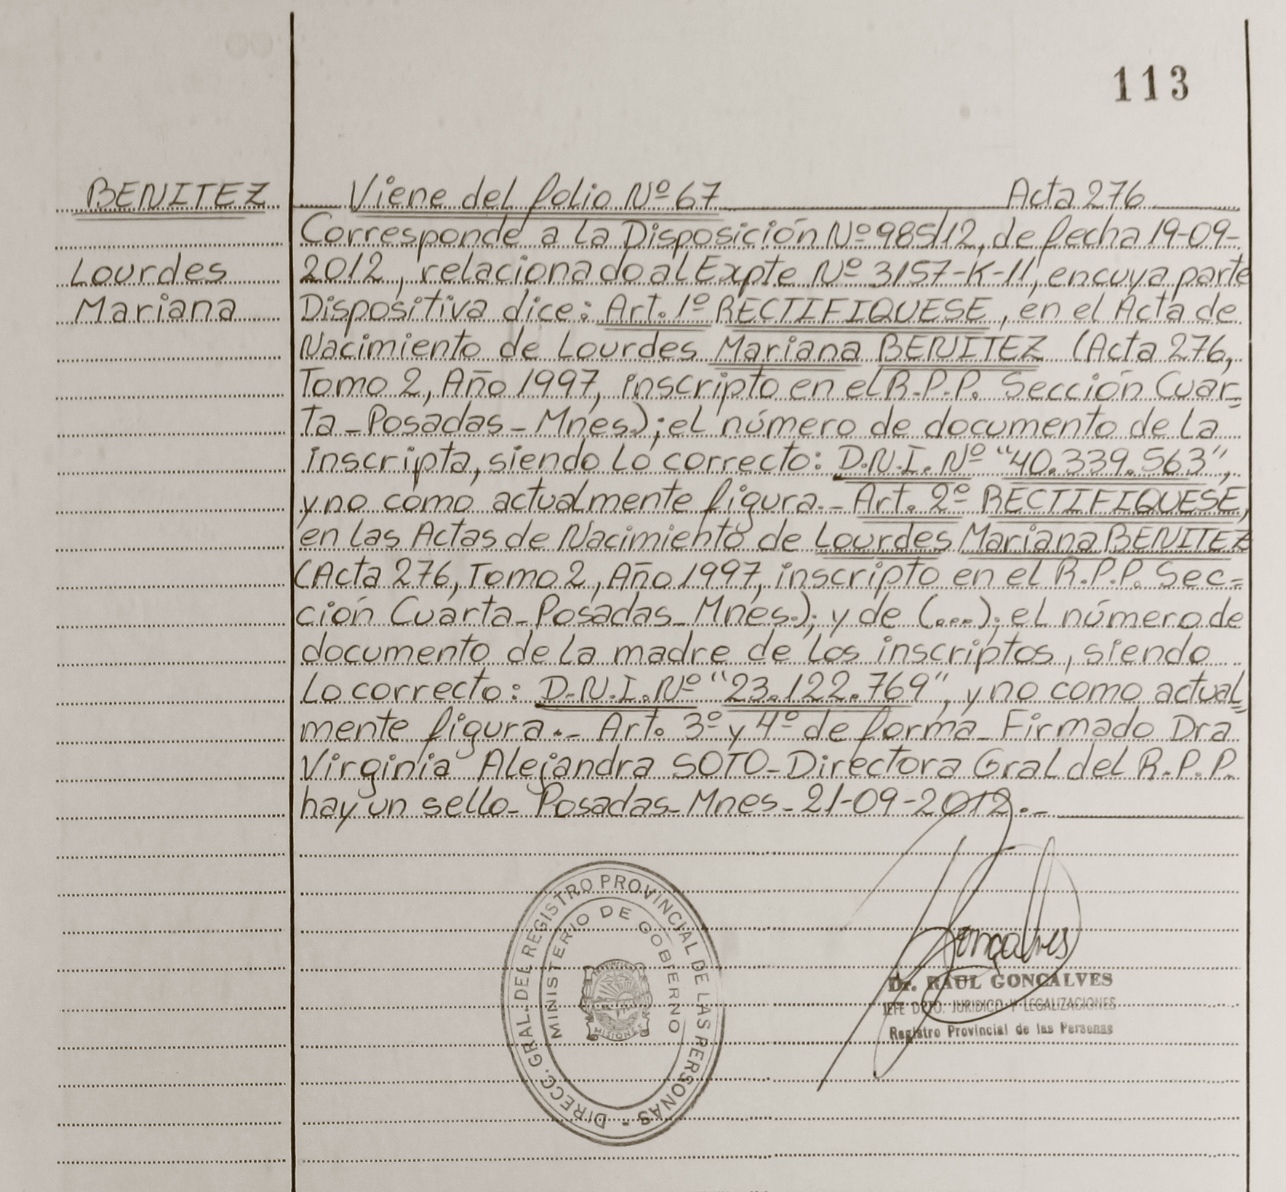 113
BENITEZ
Lourdes
Mariana
Viene del folio Nº 67 Acta 276
Corresponde a la Disposición Nº 985/12, de fecha 19-09-
2012, relacionado al Expte Nº 3157-K-11, en cuya parte
Dispositiva dice: Art. 1º RECTIFIQUESE, en el Acta de
Nacimiento de Lourdes Mariana BENITEZ (Acta 276,
Tomo 2, Año 1997, inscripto en el R.P.P. Sección Cuar=
ta - Posadas - Mnes); el número de documento de la
inscripta, siendo lo correcto: D.N.I. Nº "40.339.563",
y no como actualmente figura.- Art. 2º RECTIFIQUESE,
en las Actas de Nacimiento de Lourdes Mariana BENITEZ
(Acta 276, Tomo 2, Año 1997, inscripto en el R.P.P. Sec=
ción Cuarta - Posadas - Mnes.); y de (...); el número de
documento de la madre de los inscriptos, siendo
lo correcto: D.N.I. Nº "23.122.769", y no como actual=
mente figura.- Art. 3º y 4º de forma - Firmado Dra
Virginia Alejandra SOTO - Directora Gral del R.P.P.
hay un sello - Posadas - Mnes - 21-09-2012.-
DIRECC. GRAL. DEL REGISTRO PROVINCIAL DE LAS PERSONAS -
MINISTERIO DE GOBIERNO
MISIONES
Gonçalves
Dr. RAUL GONÇALVES
JEFE DPTO. JURIDICO Y LEGALIZACIONES
Registro Provincial de las Personas